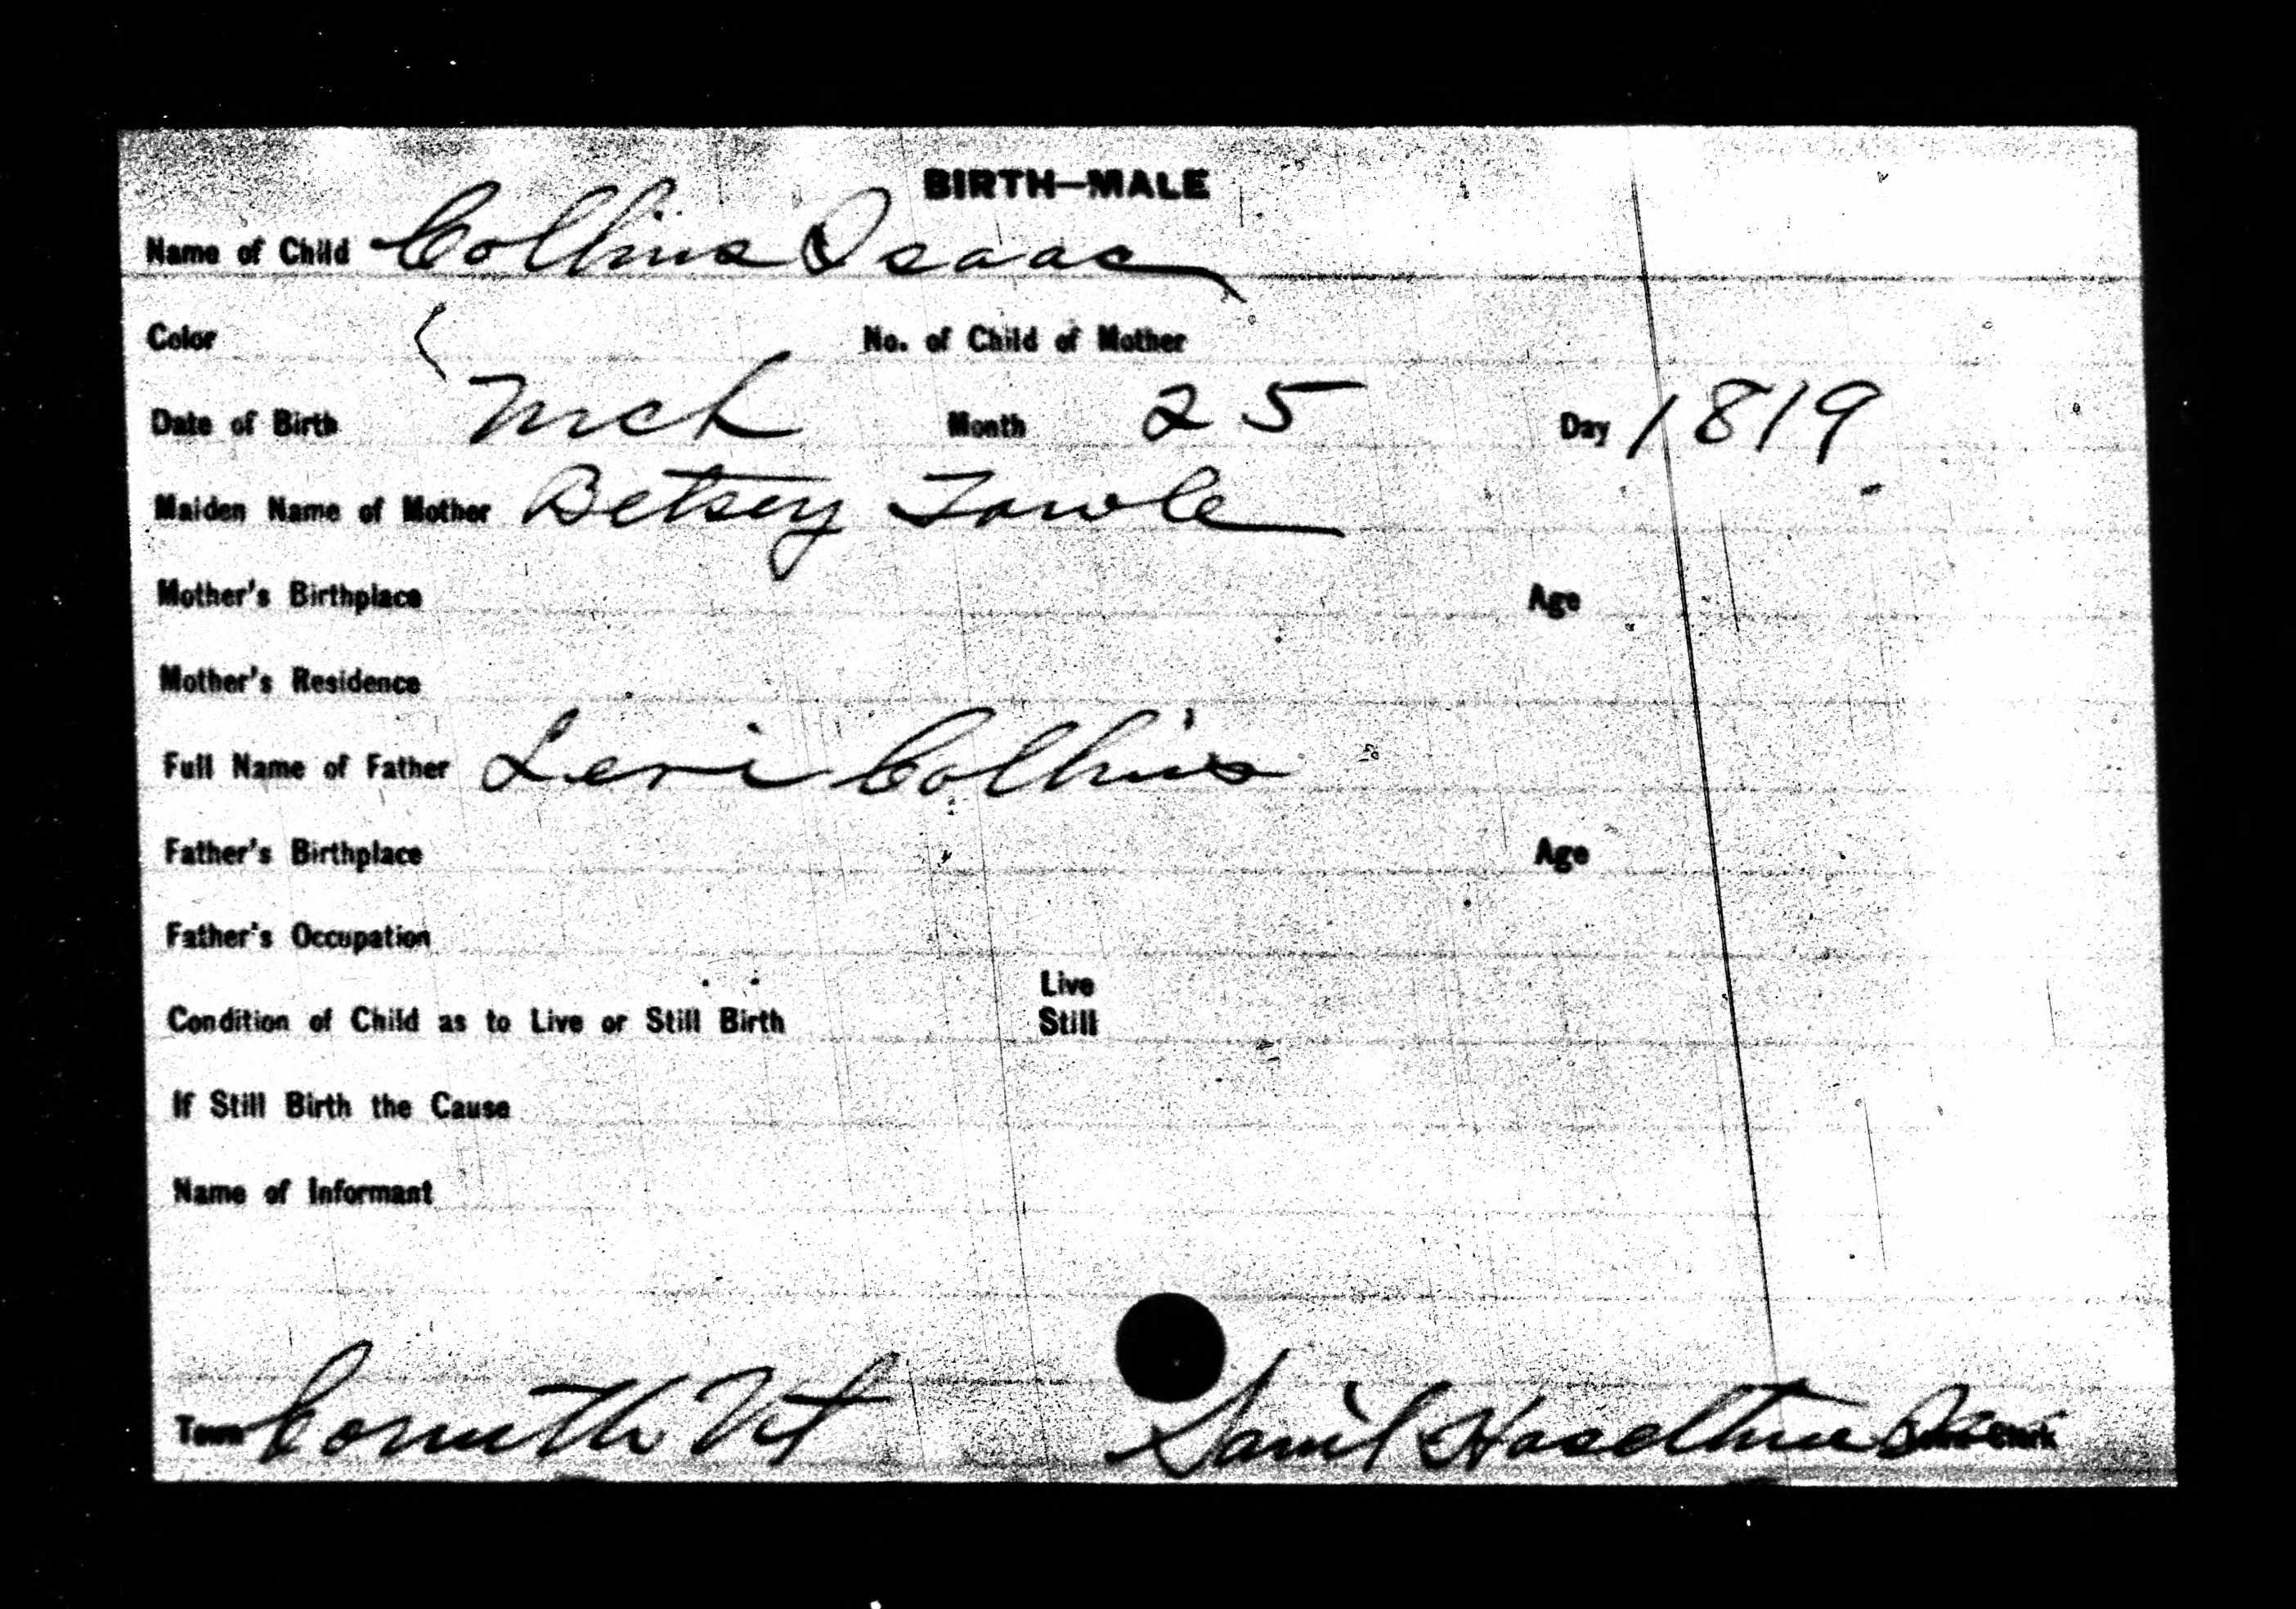 BIRTH—MALE
Name of Child Collins Isaac
Color No. of Child of Mother
Date of Birth Mch Month 25 Day 1819
Maiden Name of Mother Betsey Towle
Mother's Birthplace Age
Mother's Residence
Full Name of Father Levi Collins
Father's Birthplace Age
Father's Occupation
Live
Condition of Child as to Live or Still Birth Still
If Still Birth the Cause
Name of Informant
Town Corinth Vt Sam'l Haseltine Clerk